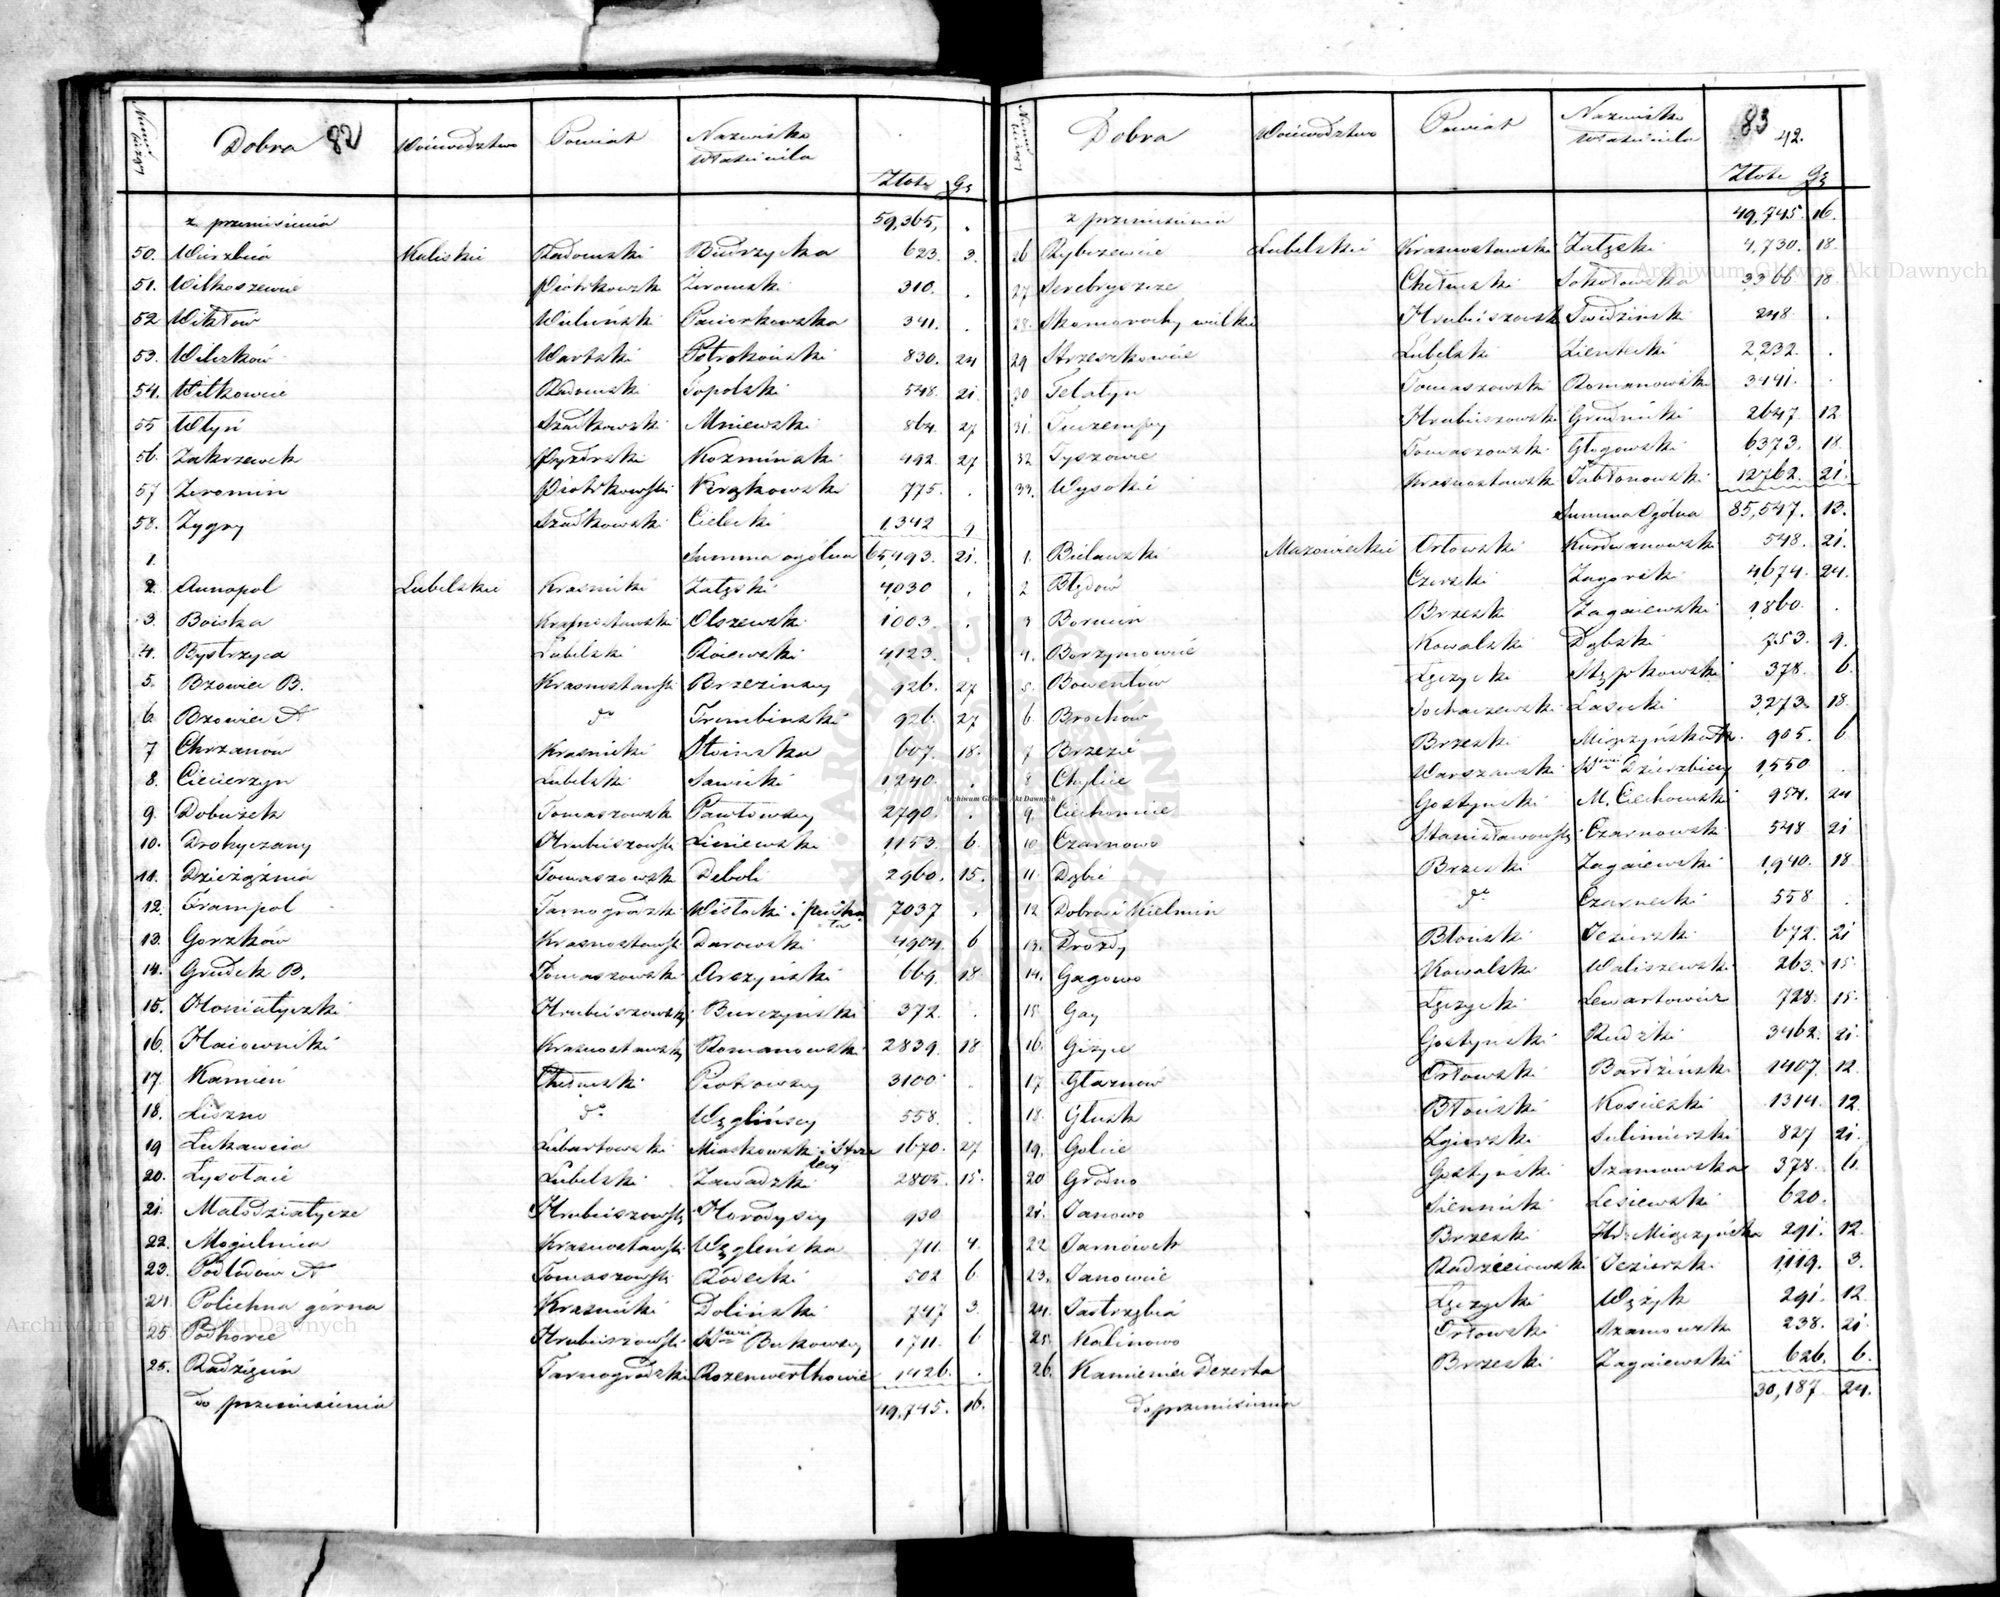 Numer bieżący Dobra 82 Województwo Powiat Nazwisko Właściciela Złote gr
z przeniesienia 59,365, .
50. Wierzbia Kaliskie Radomski Biedrzycka 623. 3.
51. Witkoszewice Piotrkowsk Żeromski 310. .
52 Witktów Wieluński Paciorkowska 341. .
53. Wilczków Wartski Potrokoński 830. 24
54. Witkowice Radomski Topolski 548. 21.
55 Wtyń Szadkowski Mniewski 864. 27
56. Zakrzewek Pyzdrski Kozmiński 492. 27
57 Żeromin Piotrkowski Krąkowski 775. .
58. Zygry Szadkowski Cielecki 1,342 9
1. Summa ogólna 65,493. 21.
2. Annopol Lubelskie Krasnicki Załęski 4030 .
3. Boiska Krasnostawski Olszewski 1003. .
4. Bystrzyca Lubelski 4123. .
5. Bzowiec B. Krasnostawski Brzezinscy 926. 27
6. Bzowiec A do Trembinski 926. 27
7 Chrzanów Krasnicki Słwinska 607. 18.
8. Ciecierzyn Lubelski Sawicki 1,240. .
9. Dobużek Tomaszowsk Pawłowscy 2790. .
10. Drohyczany Hrubieszowski Lisniewski 1153. 6.
11. Dzieżąźnia Tomaszowsk Deboli 2960. 15.
12. Frampol Tarnogrodzki Wisłocki i 7037 .
13. Gorzków Krasnostawski Darowski 4904. 6
14. Grudek B. Tomaszowski Arszyński 669. 18.
15. Honiatyczki Hrubieszowski Burczyński 372. .
16. Haiowniki Krasnostawski Romanowski 2839. 18
17. Kamień Chełmski Piotrowscy 3100 .
18. Liszno do Węglińscy 558. .
19 Łukawcia Lubartowski Miaskowski i 1670. 27
20. Łysołaie Lubelski Zawadzki 2805. 15.
21. Małodziatycze Hrubieszowski Horodyscy 930
22. Mogielnica Krasnostawski Węgleńska 711. 4.
23. Podlodow A Tomaszowski Rodecki 502 6
24. Polichna górna Krasnicki Doliński 747 3.
25 Podhorce Hrubieszowski Bukowscy 1,711. 6
25. Radzięcin Tarnogrodzki Rozenwerthowie 1426. .
do przeniesienia 49,745. 16.
Numer bieżący Dobra Województwo Powiat Nazwisko Właściciela 83 42. Złote gr
z przeniesienia 49,745. 16.
26 Rybczewice Lubelskie Krasnostawski Załęski 4,730. 18.
27 Serebryszcze Chełmski Sokołowska 3,366. 18.
28. Skomorochy wielkie Hrubieszowsk Swidziński 248. .
29 Strzeszkowice Lubelski Zientecki 2,232. .
30 Telatyn Tomaszowski Romanowski 3441. .
31. Hrubieszowski Grudnicki 2647. 12.
32 Tyszowce Tomaszowski Głogowski 6373. 18.
33. Wysokie Krasnostawski Jabłonowski 12762. 21.
Summa Ogólna 85,547. 13.
1. Bielawski Mazowieckie Orłowski Kurdwanowsk 548. 21.
2 Błędów Czerski Zagorski 4674. 24.
3 Borucin Brzeski Zagaiewski 1,860. .
4. Borzymowice Kowalski Dąbski 753. 9.
5. Boventów Łęczycki Stępkowski 378. 6.
6. Brochów Sochaczewski Lasocki 3,273. 18.
7 Brzezie Brzeski Miączyńska 905. 6
8 Chylice Warszawski Dzierzbiccy 1,550 .
9. Ciechomice Gostynski M. Ciechomski 954. 24
10. Czarnowo Stanisławowski Czarnowski 548 21
11. Dąbie Brzeski Zagaiewski 1,940. 18
12 Dobra i Kielmin do Czarnecki 558 .
13. Drozdy Błoński Jezierski 672. 21
14. Gagowo Kowalski Waliszewski 263. 15.
15. Gay Łęczycki Lewartowicz 728. 15.
16. Giżyce Gostynski Rudzki 3462. 21.
17. Głaznów Orłowski Bardziński 1407. 12.
18. Głusk Błoński Kosiecki 1314. 12.
19. Golice Zgierski Sulimierski 827 21.
20 Grodno Gostyński Szamowska 378. 6.
21. Janowo Siennicki Lesiewski 620.
22 Jarnówek Brzeski Hr. Miączyńska 291. 12.
23. Janowice Radziejowski Jezierski 1,119. 3.
24. Jastrzębia Łęczycki Wężyk 291. 12.
25. Kalinowo Orłowski Szamowski 238. 21.
26. Kamieniec Dezerta Brzeski Zagaiewski 626. 6.
do przeniesienia 30,187. 24.
Archiwum Główne Akt Dawnych
Archiwum Główne Akt Dawnych
Archiwum Główne Akt Dawnych